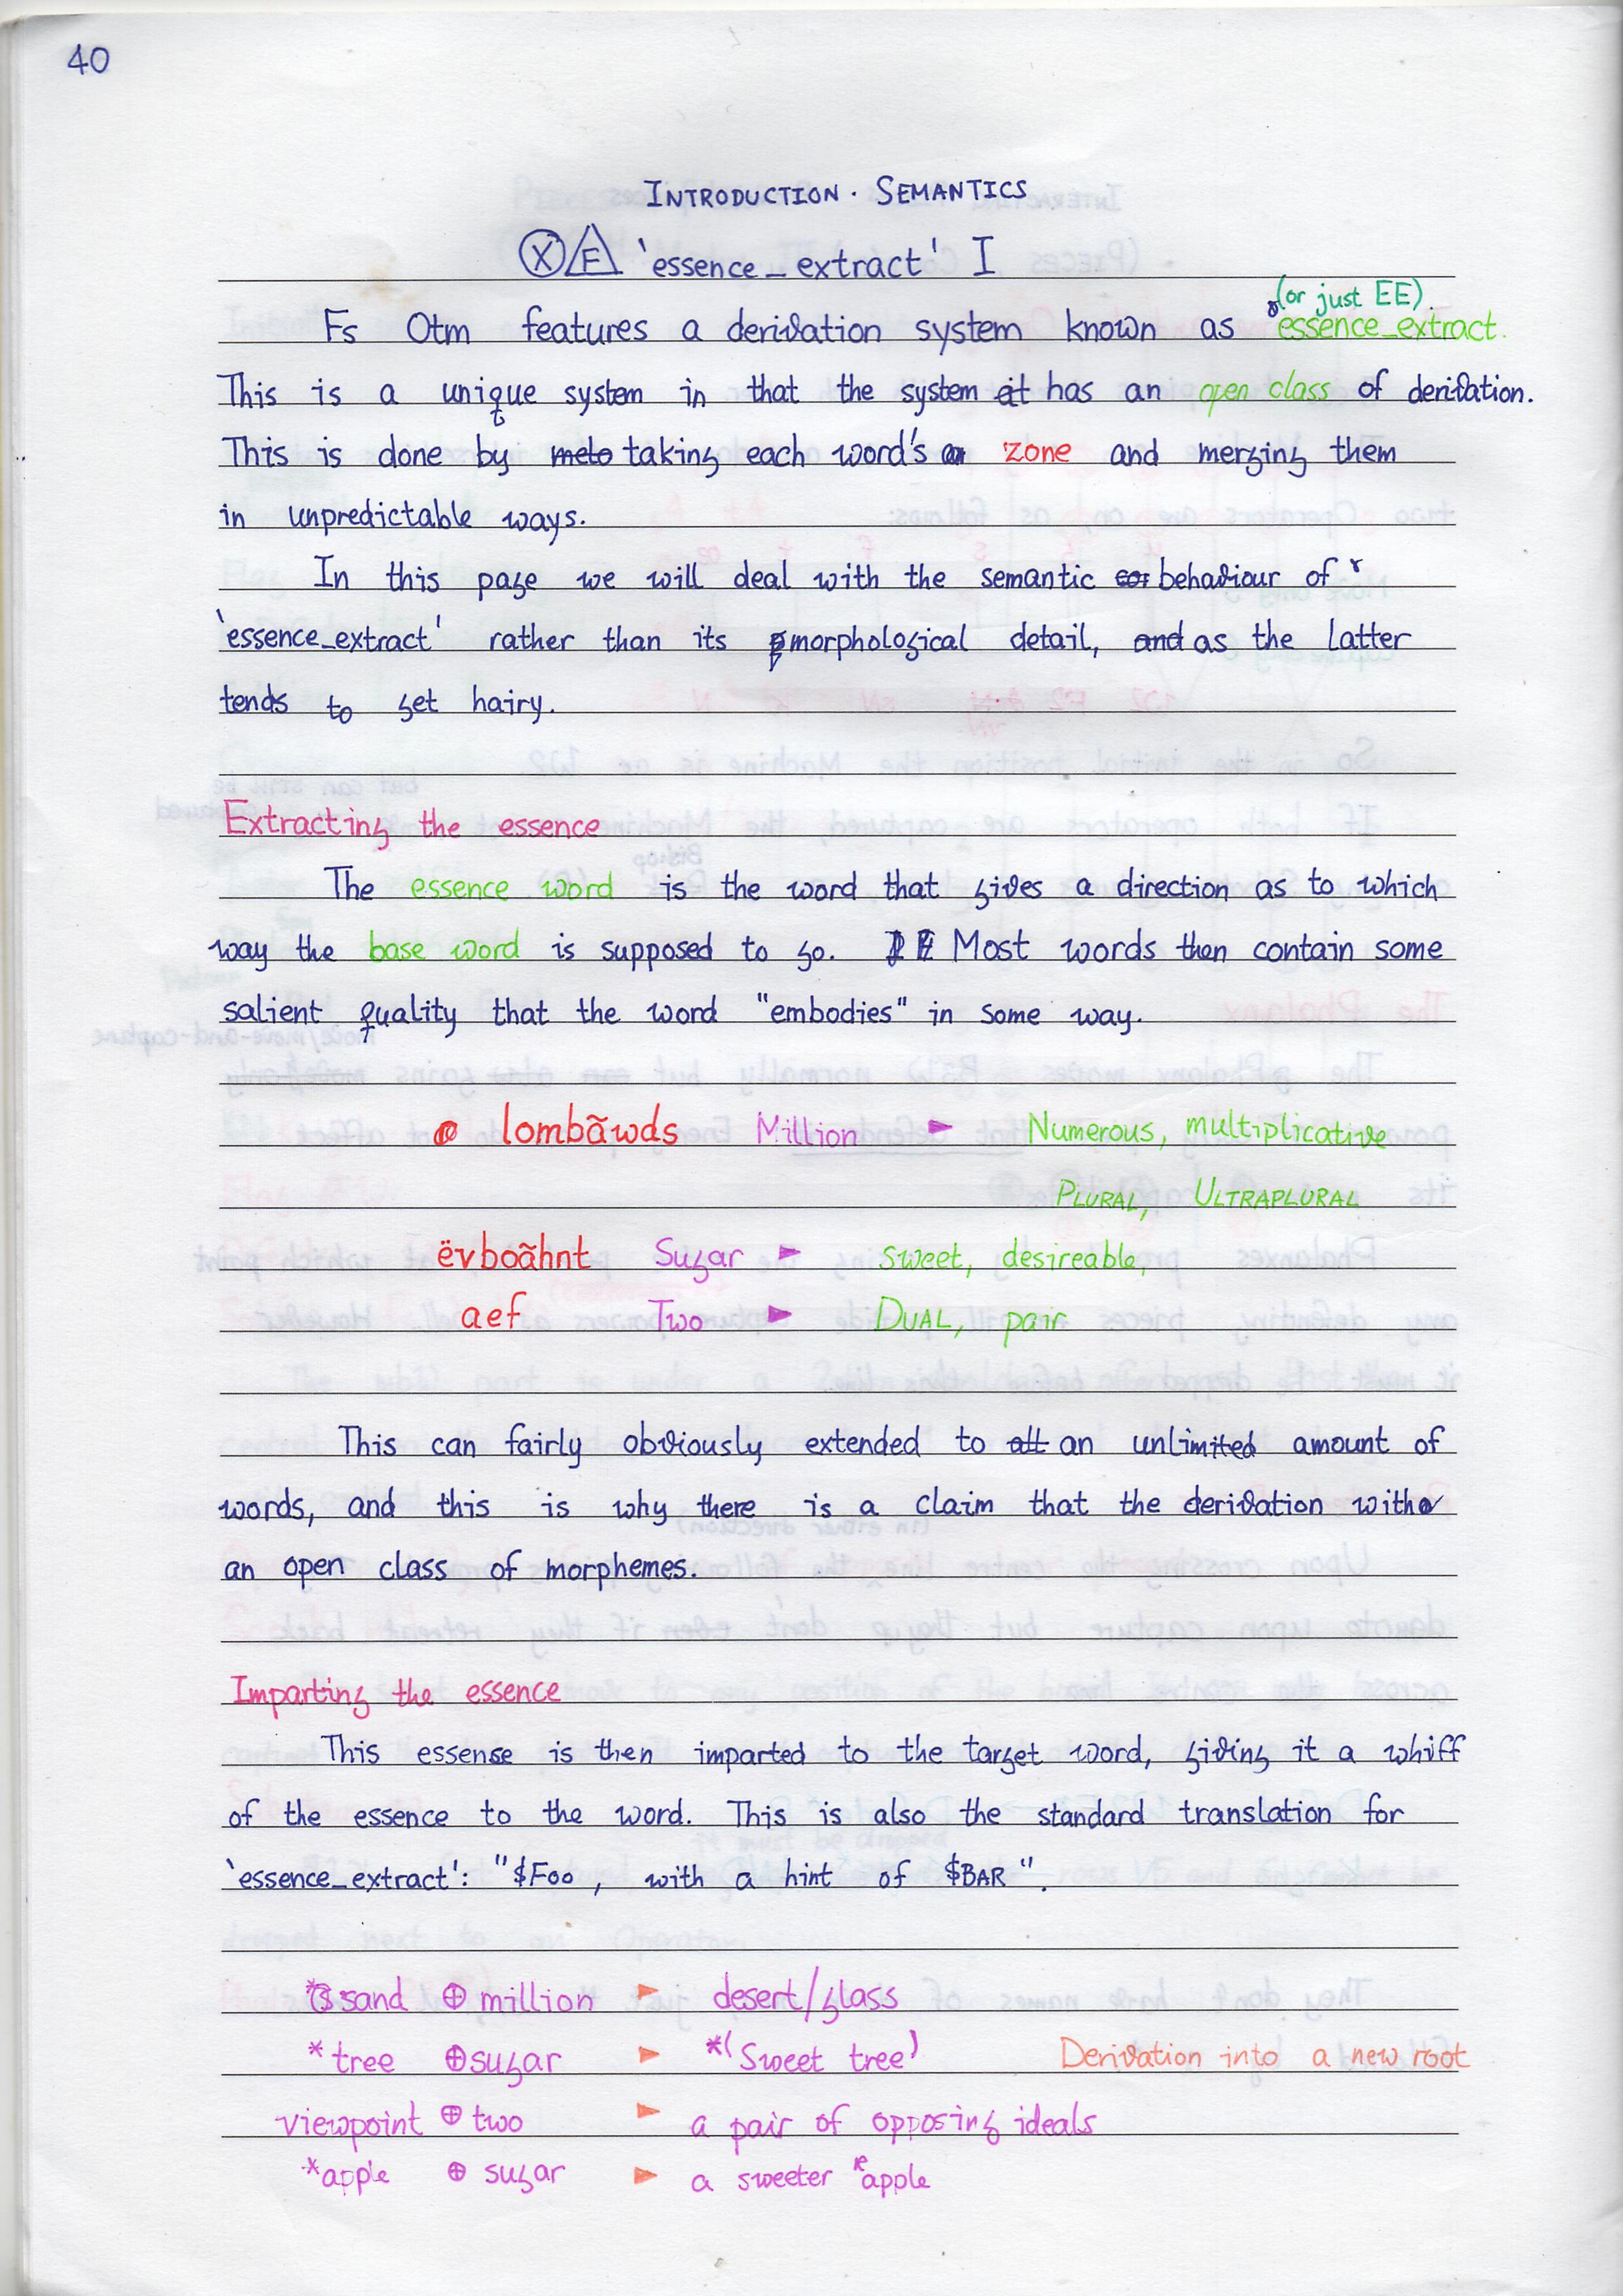 40
INTRODUCTION · SEMANTICS
ⓍE 'essence_extract' I
(or just EE).
Fs Otm features a derivation system known as essence_extract.
This is a unique system in that the system it has an open class of derivation.
This is done by meto taking each word's a zone and merging them
in unpredictable ways.
In this page we will deal with the semantic cor behaviour of
'essence_extract' rather than its morphological detail, and as the latter
tends to get hairy.
Extracting the essence
The essence word is the word that gives a direction as to which
way the base word is supposed to go. Most words then contain some
salient quality that the word "embodies" in some way.
lombãwds Million ► Numerous, multiplicative
PLURAL, ULTRAPLURAL
ëvboãhnt Sugar ► sweet, desireable,
aef Two ► DUAL, pair
This can fairly obviously extended to all an unlimited amount of
words, and this is why there is a claim that the derivation with
an open class of morphemes.
Imparting the essence
This essense is then imparted to the target word, giving it a whiff
of the essence to the word. This is also the standard translation for
'essence_extract': "$FOO, with a hint of $BAR".
*sand ⊕ million ► desert/glass
*tree ⊕ sugar ► *'Sweet tree' Derivation into a new root
viewpoint ⊕ two ► a pair of opposing ideals
*apple ⊕ sugar ► a sweeter *apple